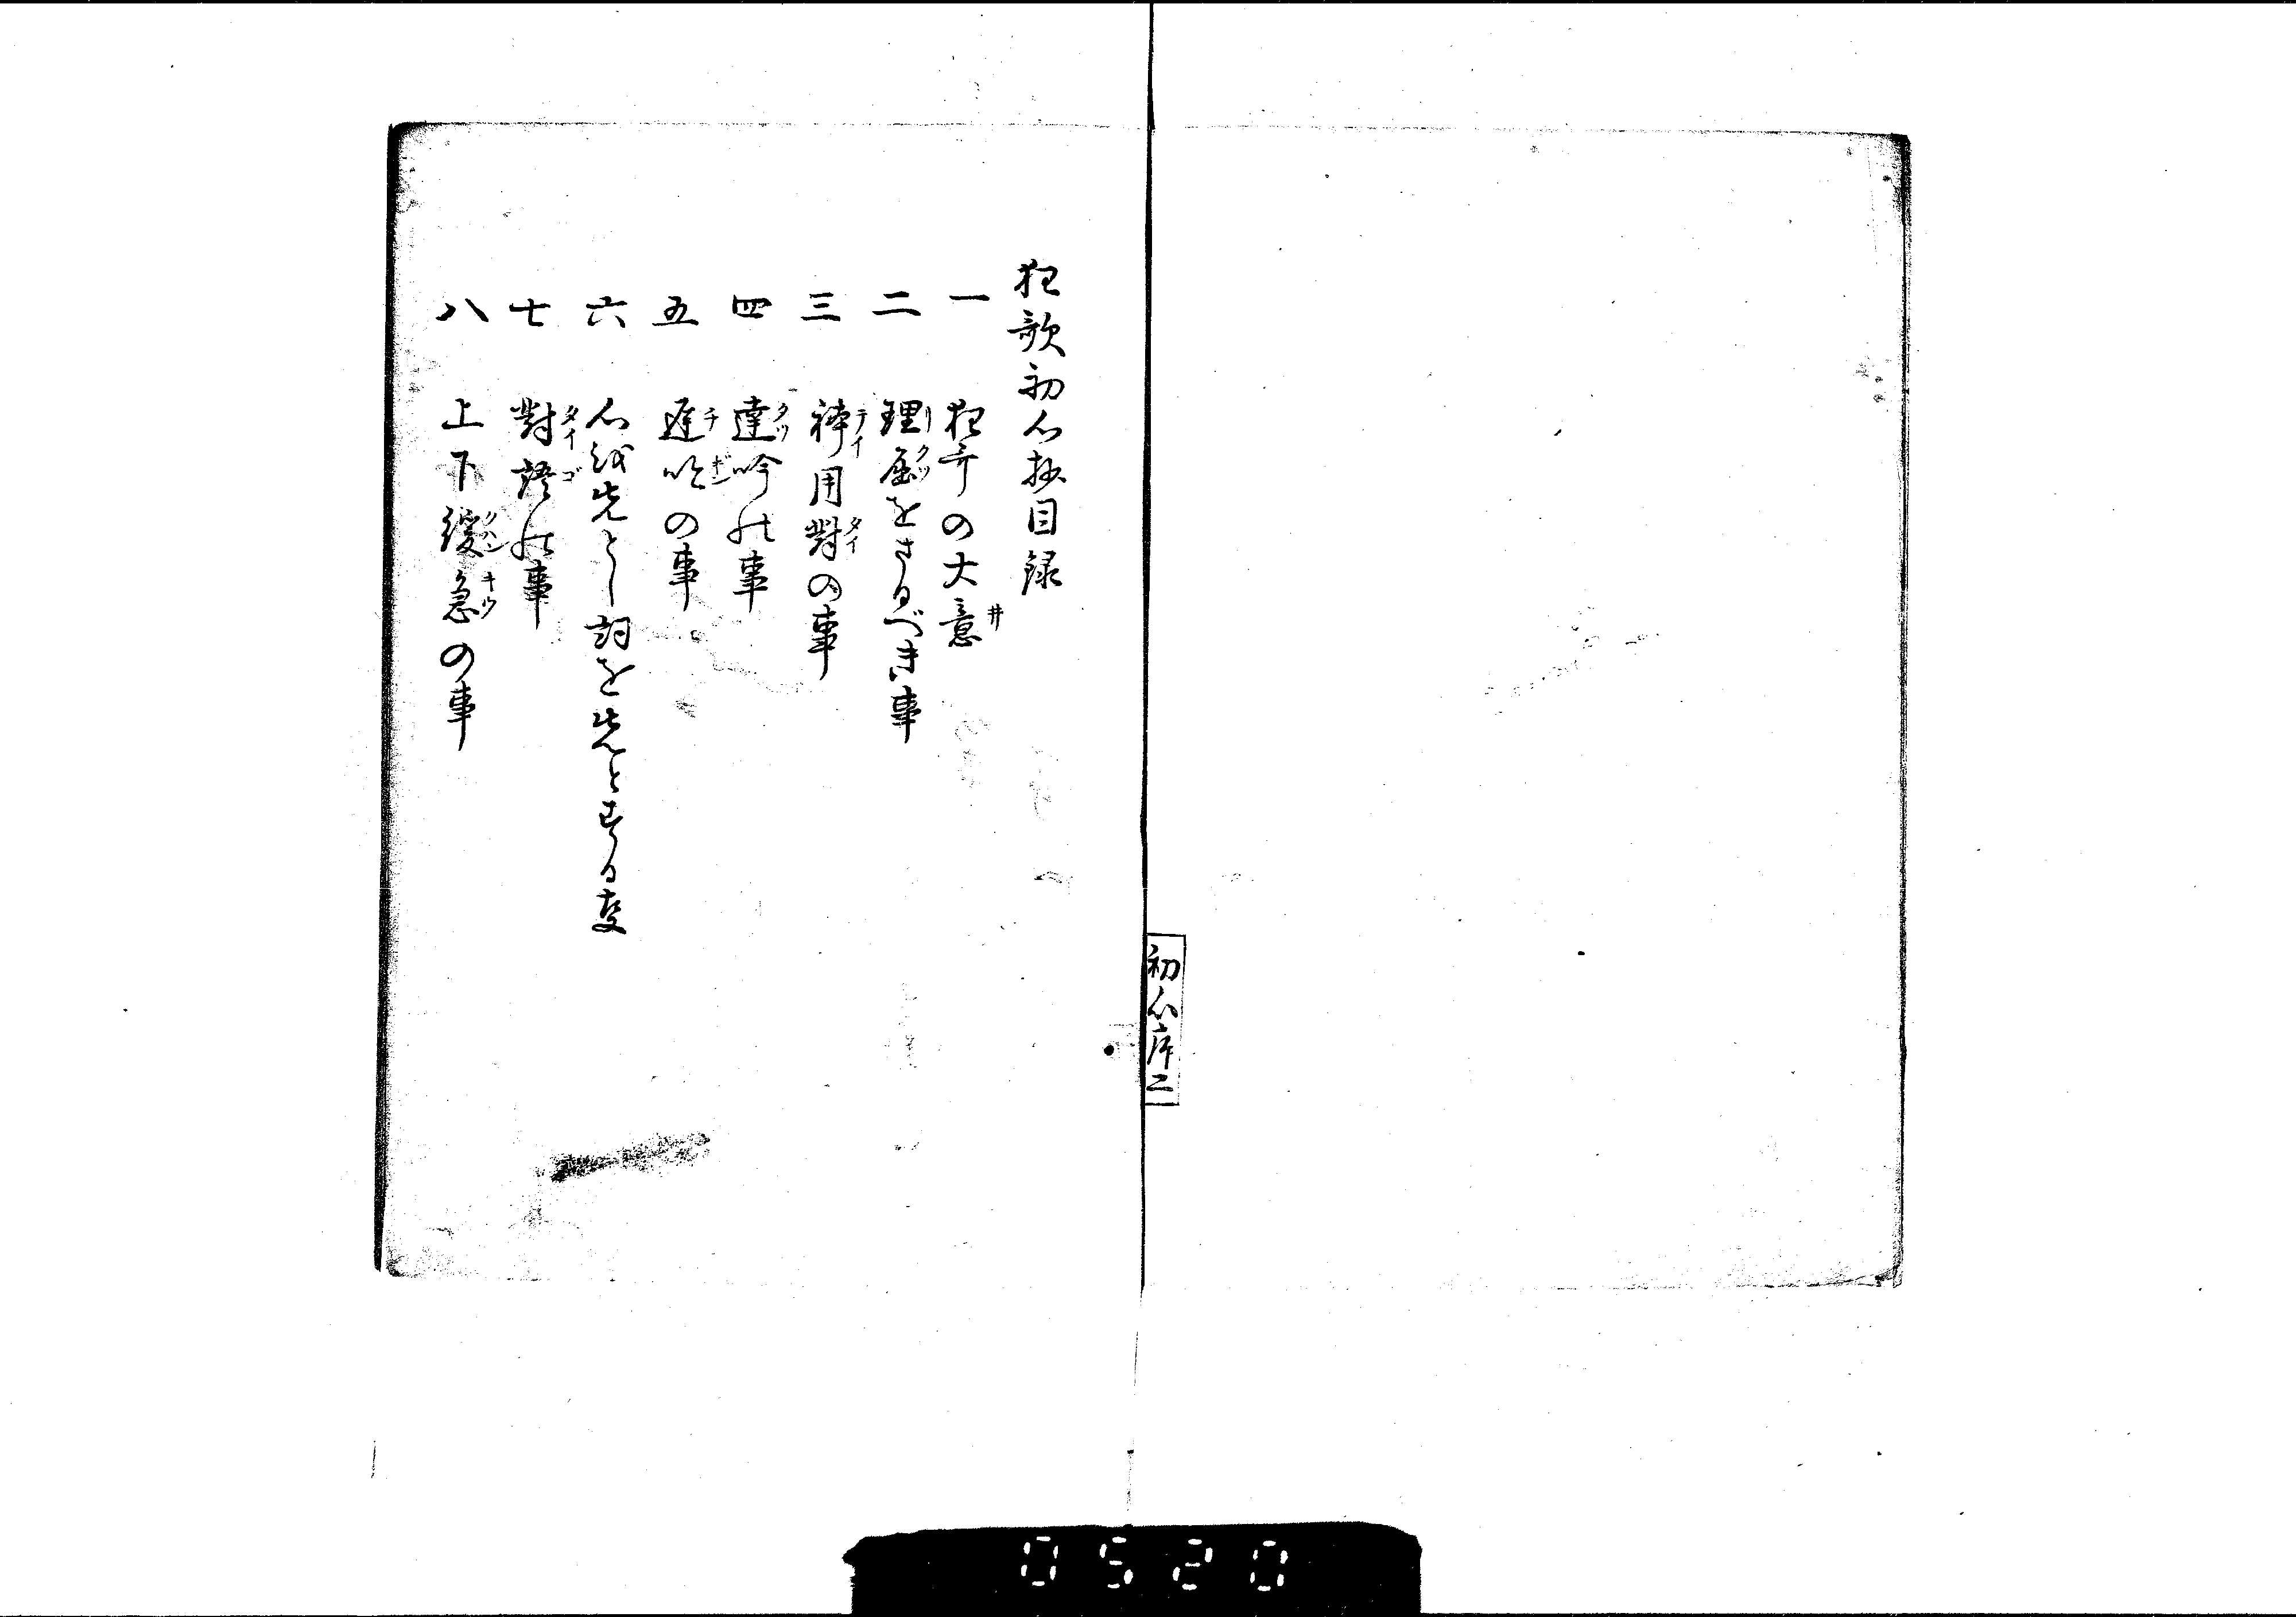 狂歌初心抄目録
一 狂哥の大意
二 理屈をさるべき事
三 体用對の事
四 達吟の事
五 遅吟の事
六 心を先とし詞を先とする事
七 對語の事
八 上下緩急の事
初心序二
0520